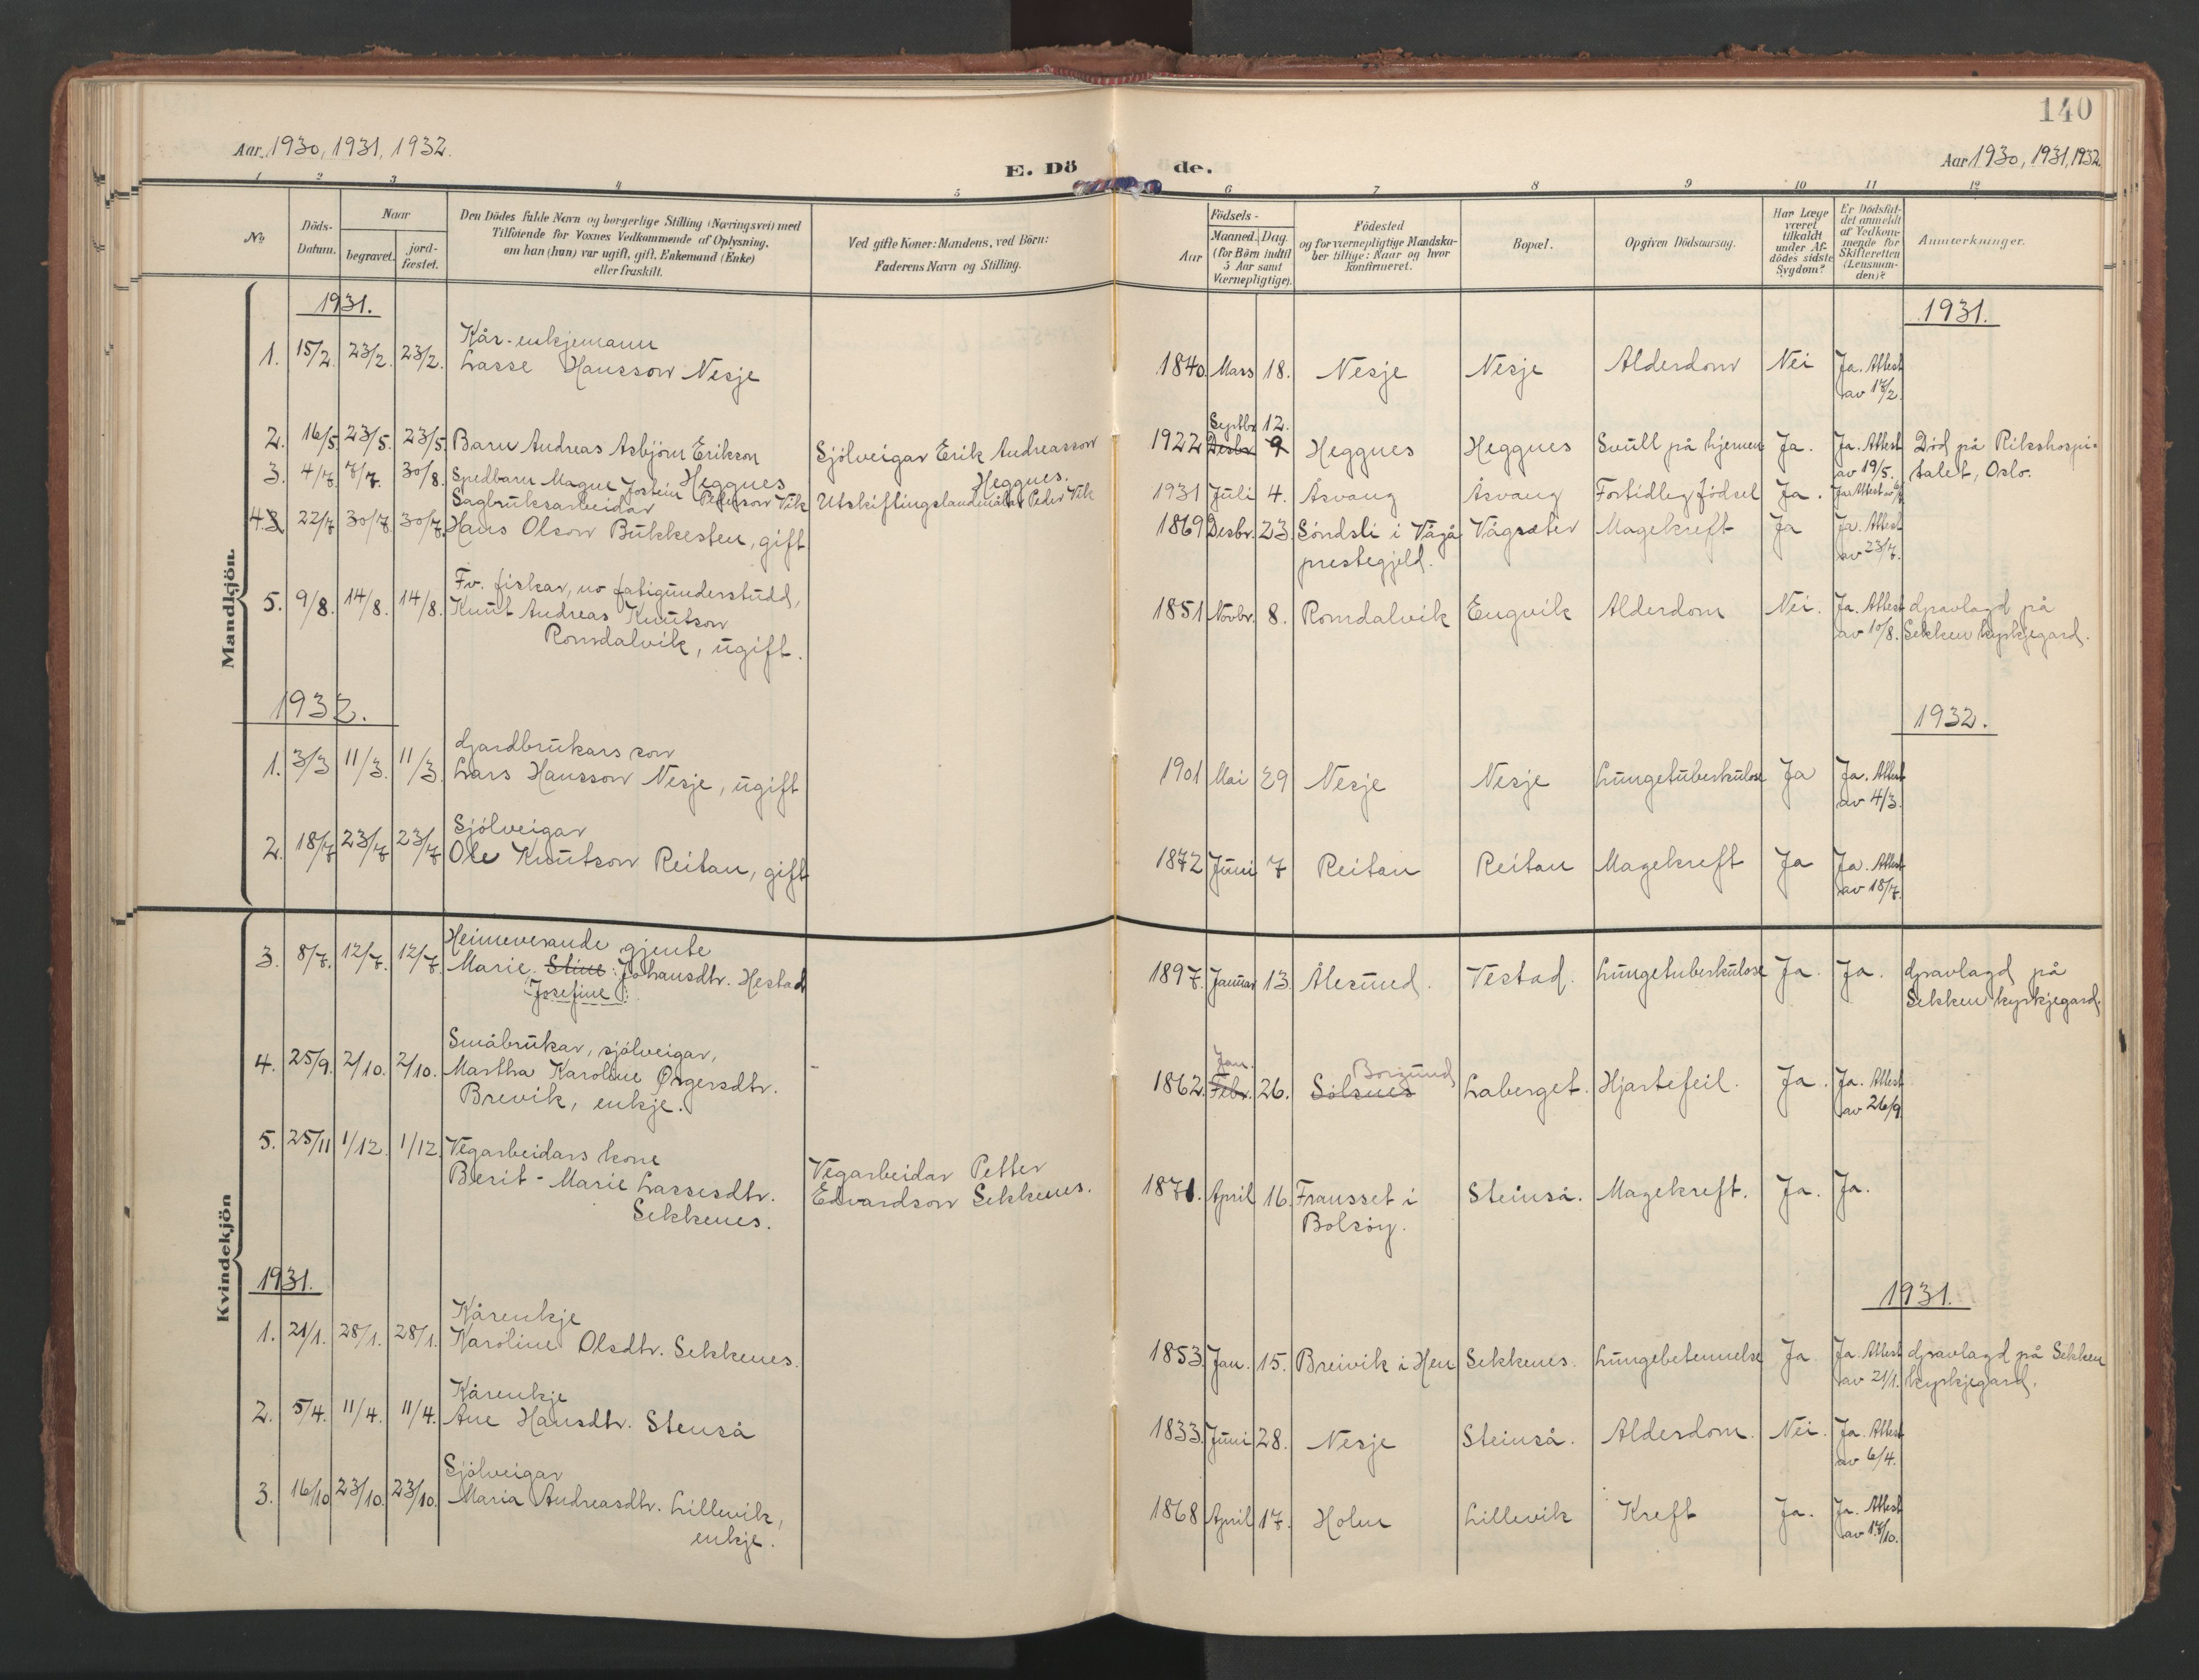 140
Aar 1930, 1931, 1932.
E. Dö de.
Aar 1930, 1931, 1932
1 2 3 4 5 6 7 8 9 10 11 12
No
Döds-Datum.
Naar
begravet.
jord-fæstet.
Den Dödes fulde Navn og borgerlige Stilling (Næringsvei) med
Tilföiende for Voxnes Vedkommende af Oplysning,
om han (hun) var ugift, gift, Enkemand (Enke)
eller fraskilt.
Ved gifte Koner: Mandens, ved Börn:
Faderens Navn og Stilling.
Födsels-
Aar
Maaned. Dag.
(for Börn indtil
5 Aar samt
Værnepligtige).
Födested
og for værnepligtige Mandska-
ber tillige: Naar og hvor
konfirmeret.
Bopæl.
Opgiven Dödsaarsag.
Har Læge
været
tilkaldt
under Af-
dödes sidste
Sygdom?
Er Dödsfal-
det anmeldt
af Vedkom-
mende for
Skifteretten
(Lensman-
den)?
Anmærkninger.
Mandkjön.
1931. 1931.
Kår-enkjemann
1. 15/2. 23/2. 23/2. Lasse Hansson Nesje 1840. Mars 18. Nesje Nesje Alderdom Nei Ja. Attest
av 17/2.
Septbr 12.
2. 16/5. 23/5. 23/5. Barn Andreas Asbjörn Erikson Sjölveigar Erik Andreasson 1922 Desbr 9 Heggnes Heggnes Svull på hjernen Ja. Ja. Attest Död på Rikshospi-
Heggnes Heggnes. av 19/5. talet, Oslo.
3. 4/7. 7/7. 30/8. Spedbarn Magne Jostein Pederson Vik Utskiftingslandmålar Peder Vik 1931 Juli 4. Åsvang Åsvang Fortidleg födsel Ja. Ja. Attest
Sagbruksarbeidar
4. 3 22/7 30/7 30/7. Hans Olson Bukkesten, gift 1869 Desbr. 23. Söndsli i Vågå Vågsæter Magekreft Ja Ja. Attest
prestegjeld. av 23/7.
Fv. fiskar, no fatigunderstudd,
5. 9/8. 14/8. 14/8. Knut Andreas Knutson 1851 Novbr. 8. Romdalvik Engvik Alderdom Nei. Ja. Attest Gravlagd på
Romdalvik, ugift. av 10/8. Sekken kyrkjegard.
1932. 1932.
Gardbrukars son
1. 3/3 11/3. 11/3. Lars Hansson Nesje, ugift 1901 Mai 29 Nesje Nesje Lungetuberkulose Ja Ja. Attest
av 4/3.
Sjölveigar
2. 18/7 23/7 23/7 Ole Knutson Reitan, gift 1872 Juni 7 Reitan Reitan Magekreft Ja Ja. Attest
av 18/7.
Kvindekjön
Heimeverande gjente
3. 8/7. 12/7. 12/7. Marie Stine Johansdtr. Hestad 1897. Januar 13. Ålesund. Vestad. Lungetuberkulose Ja. Ja. Gravlagd på
Josefine Sekken kyrkjegard.
Småbrukar, sjölveigar, Jan. Borgund
4. 25/9. 2/10. 2/10. Martha Karoline Asgersdtr. - 1862. Febr. 26. Solsnes Laberget. Hjartefeil. Ja. Ja. Attest
Brevik, enkje. av 26/9
5. 25/11 1/12. 1/12. Vegarbeidars kone Vegarbeidar Petter
Berit-Marie Lassesdtr. Edvardson Sekkenes. 1871. April 16. Frausset i Steinså. Magekreft. Ja. Ja.
Sekkenes. Bolsöy.
1931. 1931.
Kårenkje
1. 21/1. 28/1. 28/1. Karoline Olsdtr. Sekkenes. 1853. Jan. 15. Breivik i Hen Sekkenes. Lungebetennelse Ja Ja. Attest Gravlagd på Sekken
av 21/1. kyrkjegard.
Kårenkje
2. 5/4. 11/4. 11/4. Ane Hansdtr. Stenså 1833. Juni 28. Nesje Steinså. Alderdom. Nei. Ja. Attest
av 6/4.
Sjölveigar
3. 16/10 23/10. 23/10. Maria Andreasdtr. Lillevik, 1868 April 17. Holm Lillevik Kreft Ja. Ja. Attest
enkje. av 17/10.